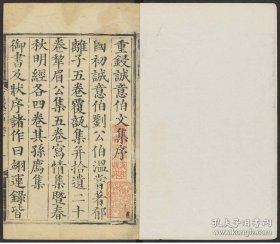 重鋟誠意伯文集序
國初誠意伯劉公伯溫嘗著郁
離子五卷覆瓿集并拾遺二十
卷犁眉公集五卷寫情集暨春
秋明經各四卷其孫廌集
御書及狀序諸作曰翊運録皆